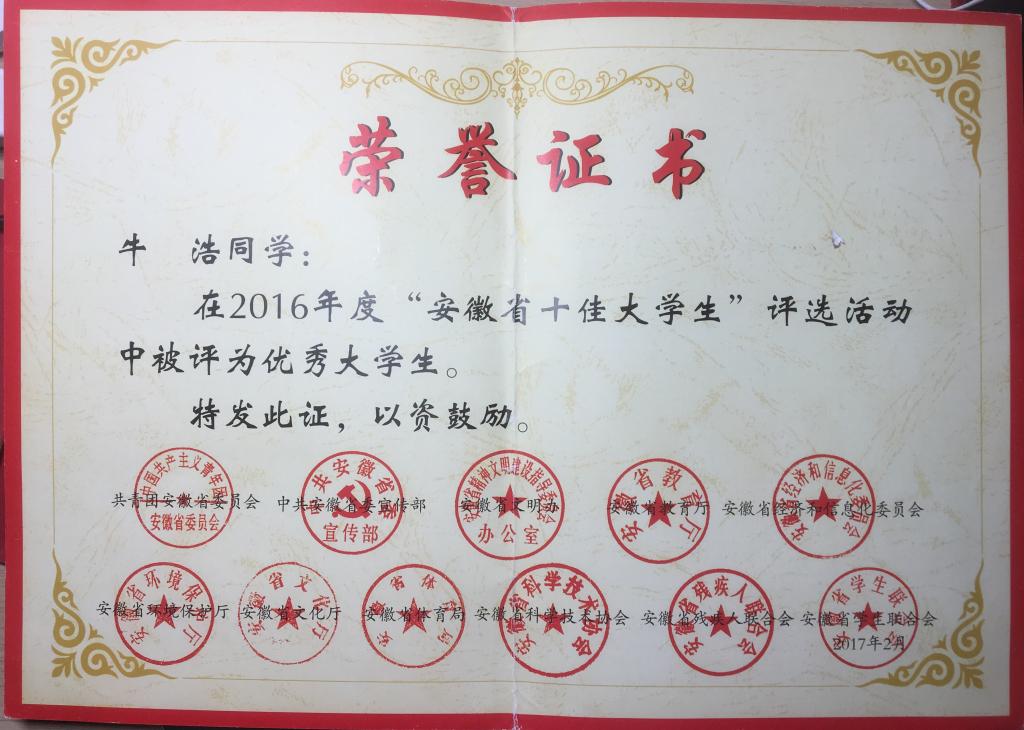 荣誉证书
牛 浩同学：
在2016年度“安徽省十佳大学生”评选活动
中被评为优秀大学生。
特发此证，以资鼓励。
中国共产主义青年团
安徽省委员会
中共安徽省委
宣传部
安徽省精神文明建设指导委员会
办公室
安徽省教育厅
安徽省经济和信息化委员会
共青团安徽省委员会 中共安徽省委宣传部 安徽省文明办 安徽省教育厅 安徽省经济和信息化委员会
安徽省环境保护厅
安徽省文化厅
安徽省体育局
安徽省科学技术协会
安徽省残疾人联合会
安徽省学生联合会
安徽省环境保护厅 安徽省文化厅 安徽省体育局 安徽省科学技术协会 安徽省残疾人联合会 安徽省学生联合会
2017年2月